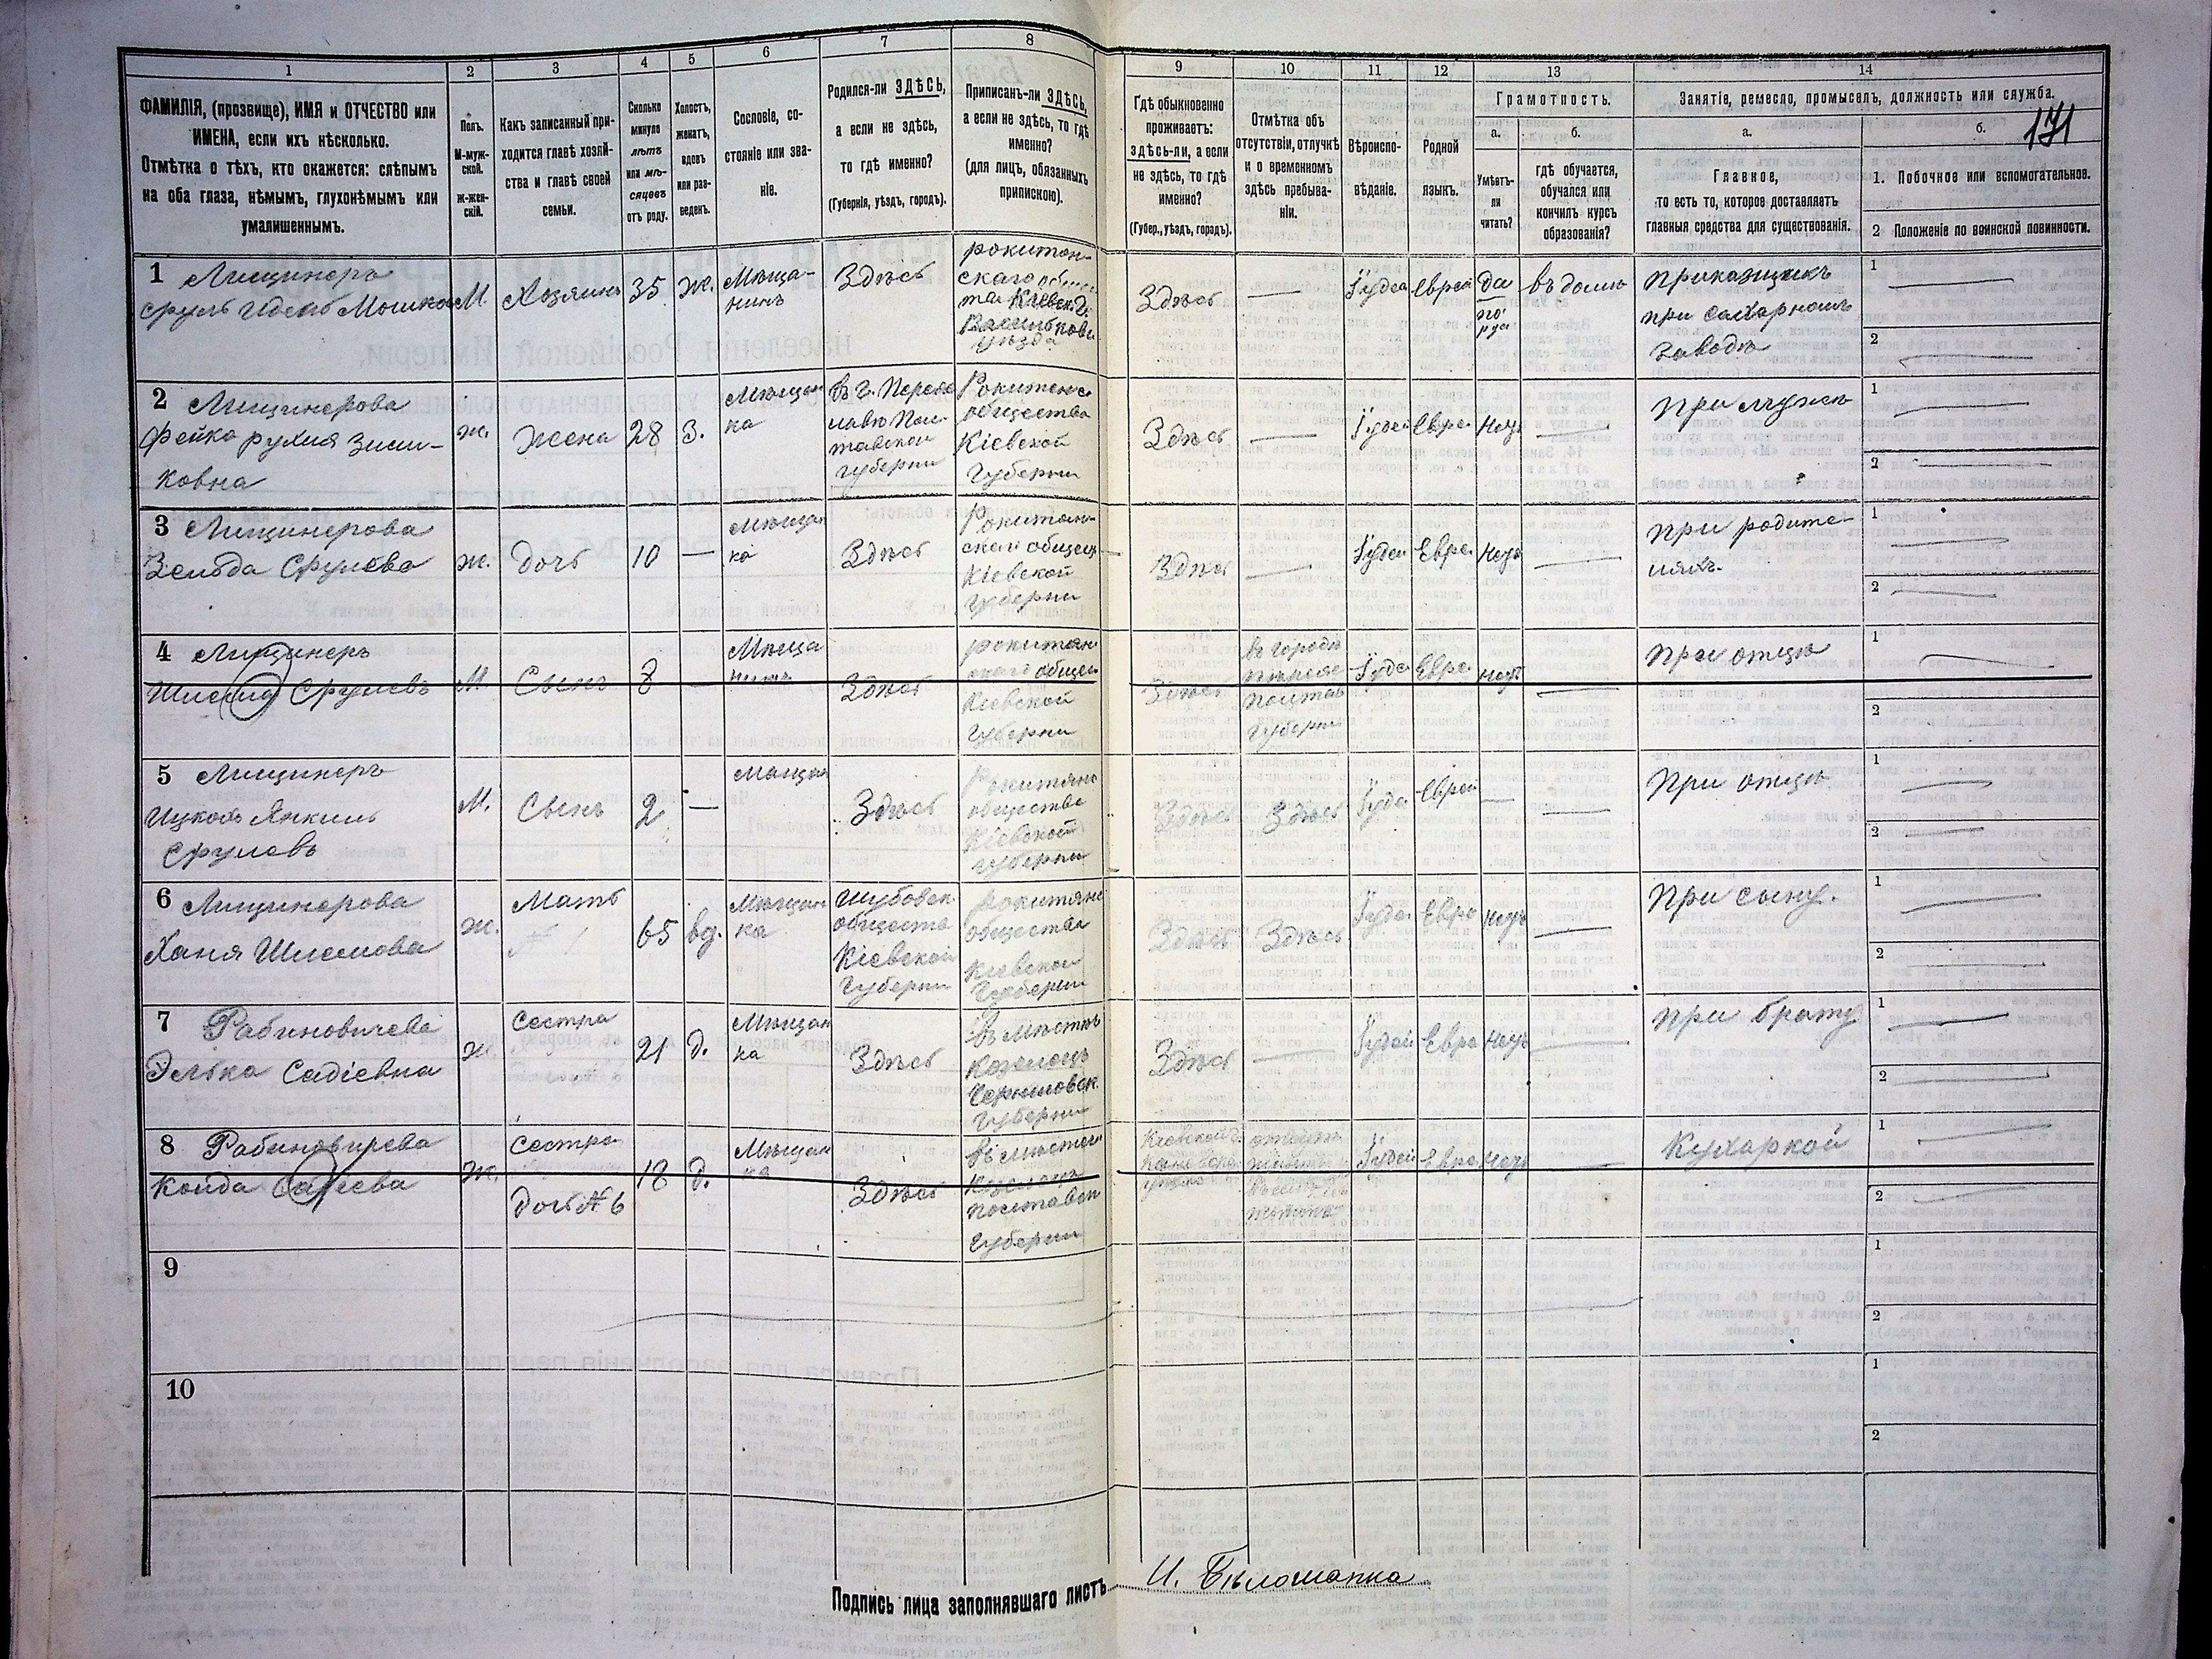 1
2
3
4
5
6
7
8
9
10
11
12
13
14
ФАМИЛІЯ, (прозвище), ИМЯ и ОТЧЕСТВО или
ИМЕНА, если ихъ нѣсколько.
Отмѣтка о тѣхъ, кто окажется: слѣпымъ
на оба глаза, нѣмымъ, глухонѣмымъ или
умалишеннымъ.
Полъ.
М-муж-
ской.
ж-жен-
скій.
Какъ записанный при-
ходится главѣ хозяй-
ства и главѣ своей
семьи.
Сколько
минуло
лѣтъ
или мѣ-
сяцевъ
отъ роду.
Холостъ,
женатъ,
вдовъ
или раз-
веденъ.
Сословіе, со-
стояніе или зва-
ніе.
Родился-ли ЗДѢСЬ,
а если не здѣсь,
то гдѣ именно?
(Губернія, уѣздъ, городъ).
Приписанъ-ли ЗДѢСЬ,
а если не здѣсь, то гдѣ
именно?
(для лицъ, обязанныхъ
припискою).
Гдѣ обыкновенно
проживаетъ:
здѣсь-ли, а если
не здѣсь, то гдѣ
именно?
(Губер., уѣздъ, городъ).
Отмѣтка объ
отсутствіи, отлучкѣ
и о временномъ
здѣсь пребыва-
ніи.
Вѣроиспо-
вѣданіе.
Родной
языкъ.
Грамотность.
а.
б.
Умѣетъ-
ли
читать?
гдѣ обучается,
обучался или
кончилъ курсъ
образованія?
Занятіе, ремесло, промыселъ, должность или служба.
171
а.
б.
Главное,
то есть то, которое доставляетъ
главныя средства для существованія.
1. Побочное или вспомогательное.
2 Положеніе по воинской повинности.
1 Лищинеръ
Сруль Мошков
М.
Хозяинъ
35
ж.
Мѣща-
нинъ
Здѣсь
рокитан-
скаго
Кіевск.
уѣзда
Здѣсь
—
Іудей
Еврей
Да
по
рус
въ домѣ
приказщикъ
при сахарномъ
заводѣ
1 —
2 —
2 Лищинерова
Фейга рухля Зись-
ковна
ж.
Жена
28
З.
Мѣщан
ка
въ г. Перея
лавѣ Пол-
тавской
губерни
Рокитенс.
общества
Кіевской
Губерни
Здѣсь
—
Іудей
Еврей
Нетъ
—
при мужѣ
1 —
2 —
3 Лищинерова
Зельда Срулева
ж.
дочь
10
—
Мѣщан
ка
Здѣсь
Рокитан-
скаго общес
Кіевской
Губерни
Здѣсь
—
Іудей
Еврей
Нетъ
—
при родите-
ляхъ.
1 —
2 —
4 Лищинеръ
Срулевъ
М.
Сынъ
8
—
Мѣща
нинъ
Здѣсь
рокитян
скаго общес
Кіевской
Губерни
Здѣсь
въ городѣ
полтав
губерни
Іудей
Евре
нетъ
—
при отцѣ
1 —
2
5 Лищинеръ
Ицкохъ Янкиль
Срулевъ
М.
Сынъ
2
—
Мѣщан
Здѣсь
Рокитянс
общества
Кіевской
губерни
Здѣсь
Здѣсь
Іуде
Еврей
—
—
при отцѣ
1 —
2 —
6 Лищинерова
Ханя Шлемова
ж.
Мать
65
вд.
Мѣщан
ка
общества
Кіевской
Губерни
рокитянс
общества
Кіевской
Губерни
Здѣсь
Здѣсь
Іудей
Евре
Нетъ
—
При сыну.
1 —
2 —
7 Рабиновичева
Элька Садіевна
ж.
Сестра
21
д.
Мѣщан
ка
Здѣсь
въ мѣстѣ
Козелецъ
Черниговск.
Губерни
Здѣсь
—
Іудей
Евре
Нетъ
—
при брату
1 —
2 —
8 Рабиновичева
Койда
ж.
Сестра
дочь № 6
18
д.
Мѣщан
ка
Здѣсь
въ мѣстеч
Полтавск
Губерни
Кіевской
Іудей
Евре
Нетъ
—
Кухаркой
1 —
2 —
9
1
2
10
1
2
Подпись лица заполнявшаго листъ И. Бѣлошапка